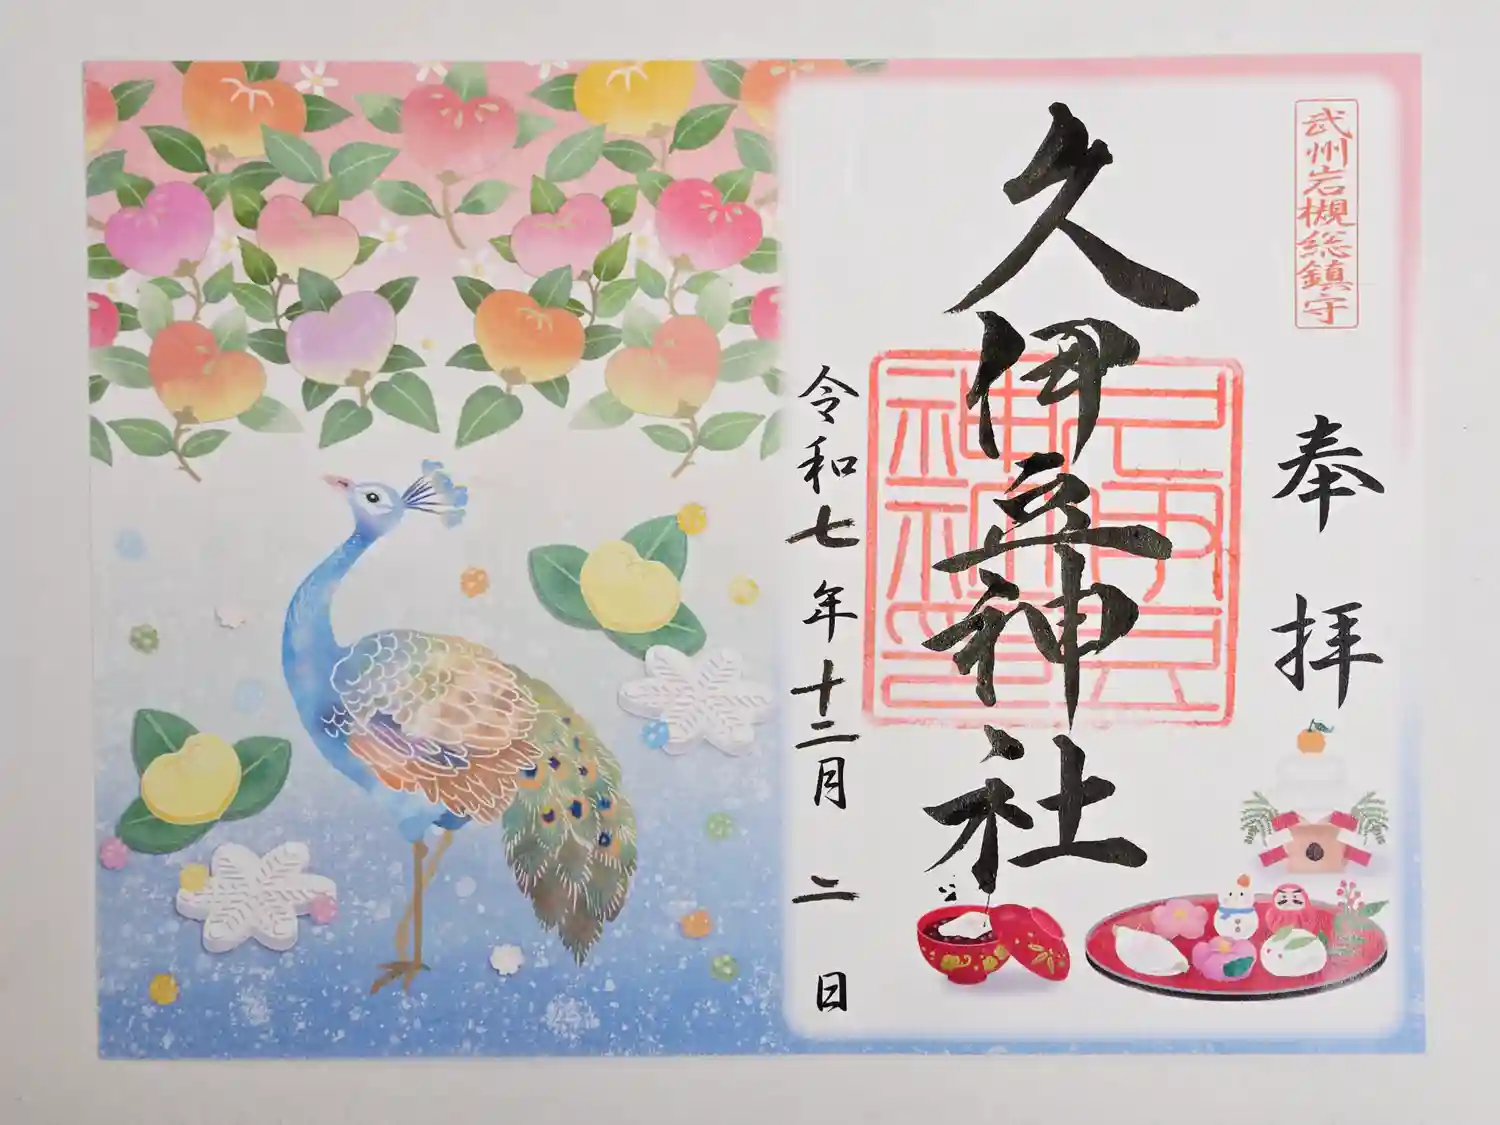 武州岩槻総鎮守
奉拝
久伊豆神社
令和七年十二月二日